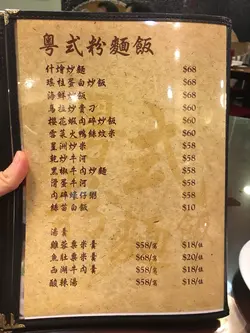 粵式粉麵飯
什燴炒麵 $68
瑤柱蛋白炒飯 $68
海鮮炒飯 $68
烏拉炒膏刀 $60
櫻花蝦肉碎炒飯 $60
雪菜火鴨絲炆米 $60
星洲炒米 $58
乾炒牛河 $58
黑椒牛肉炒麵 $58
滑蛋牛河 $58
肉碎蠔仔粥 $58
絲苗白飯 $10
湯羹
雞蓉粟米羹 $58/窩 $18/位
魚肚粟米羹 $68/窩 $20/位
西湖牛肉羹 $58/窩 $18/位
酸辣湯 $58/窩 $18/位